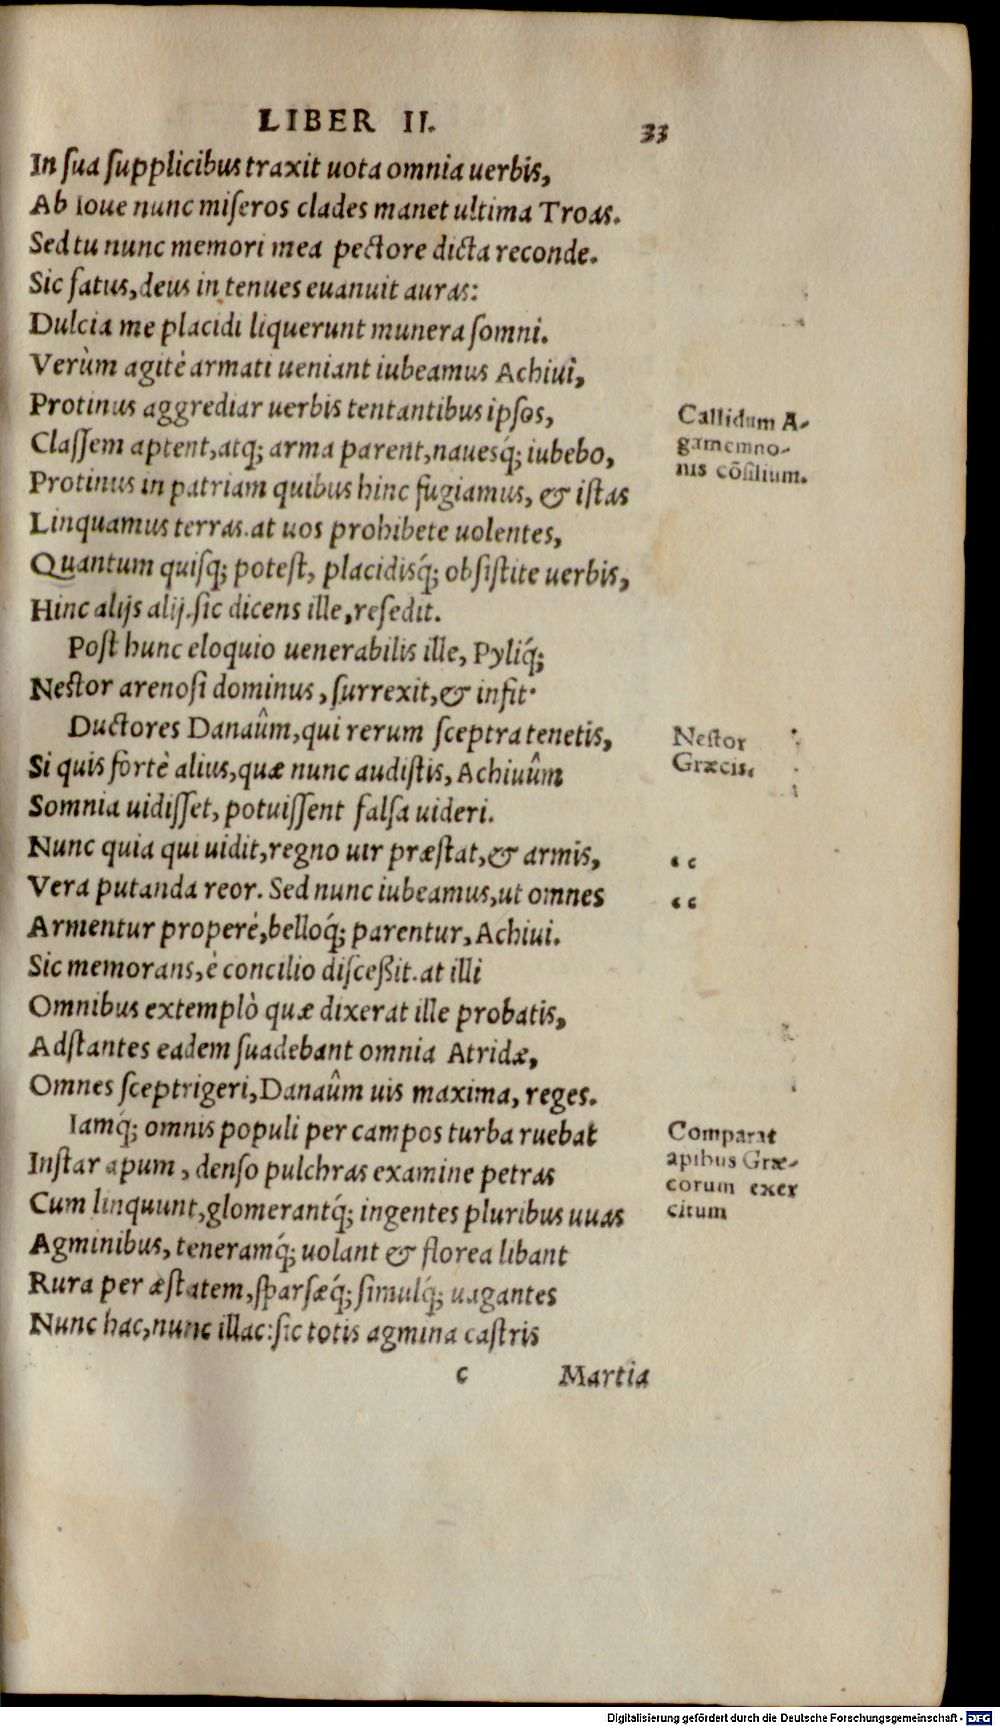 LIBER II. 33
In ſua ſupplicibus traxit uota omnia uerbis,
Ab Ioue nunc miſeros clades manet ultima Troas.
Sed tu nunc memori mea pectore dicta reconde.
Sic fatus, deus in tenues euanuit auras:
Dulcia me placidi liquerunt munera ſomni.
Verùm agitè armati ueniant iubeamus Achiui,
Protinus aggrediar uerbis tentantibus ipſos,
Claſſem aptent, atq; arma parent, nauesq́; iubebo,
Protinus in patriam quibus hinc fugiamus, & iſtas
Linquamus terras. at uos prohibete uolentes,
Quantum quiſq; poteſt, placidisq́; obſiſtite uerbis,
Hinc alijs alij. ſic dicens ille, reſedit.
Callidum A-
gamemno-
nis cõſilium.
Poſt hunc eloquio uenerabilis ille, Pyliq́;
Neſtor arenoſi dominus, ſurrexit, & infit·
Ductores Danaûm, qui rerum ſceptra tenetis,
Si quis fortè alius, quæ nunc audiſtis, Achiuûm
Somnia uidiſſet, potuiſſent falſa uideri.
Nunc quia qui uidit, regno uir præſtat, & armis,
Vera putanda reor. Sed nunc iubeamus, ut omnes
Armentur properè, belloq́; parentur, Achiui.
Sic memorans, è concilio diſceßit. at illi
Omnibus extemplò quæ dixerat ille probatis,
Adſtantes eadem ſuadebant omnia Atridæ,
Omnes ſceptrigeri, Danaûm uis maxima, reges.
Neſtor
Græcis.
“
“
Iamq́; omnis populi per campos turba ruebat
Inſtar apum, denſo pulchras examine petras
Cum linquunt, glomerantq́; ingentes pluribus uuas
Agminibus, teneramq́; uolant & florea libant
Rura per æſtatem, ſparſæq́; ſimulq́; uagantes
Nunc hac, nunc illac: ſic totis agmina caſtris
Comparat
apibus Græ-
corum exer
citum
c Martia
Digitalisierung gefördert durch die Deutsche Forschungsgemeinschaft - DFG